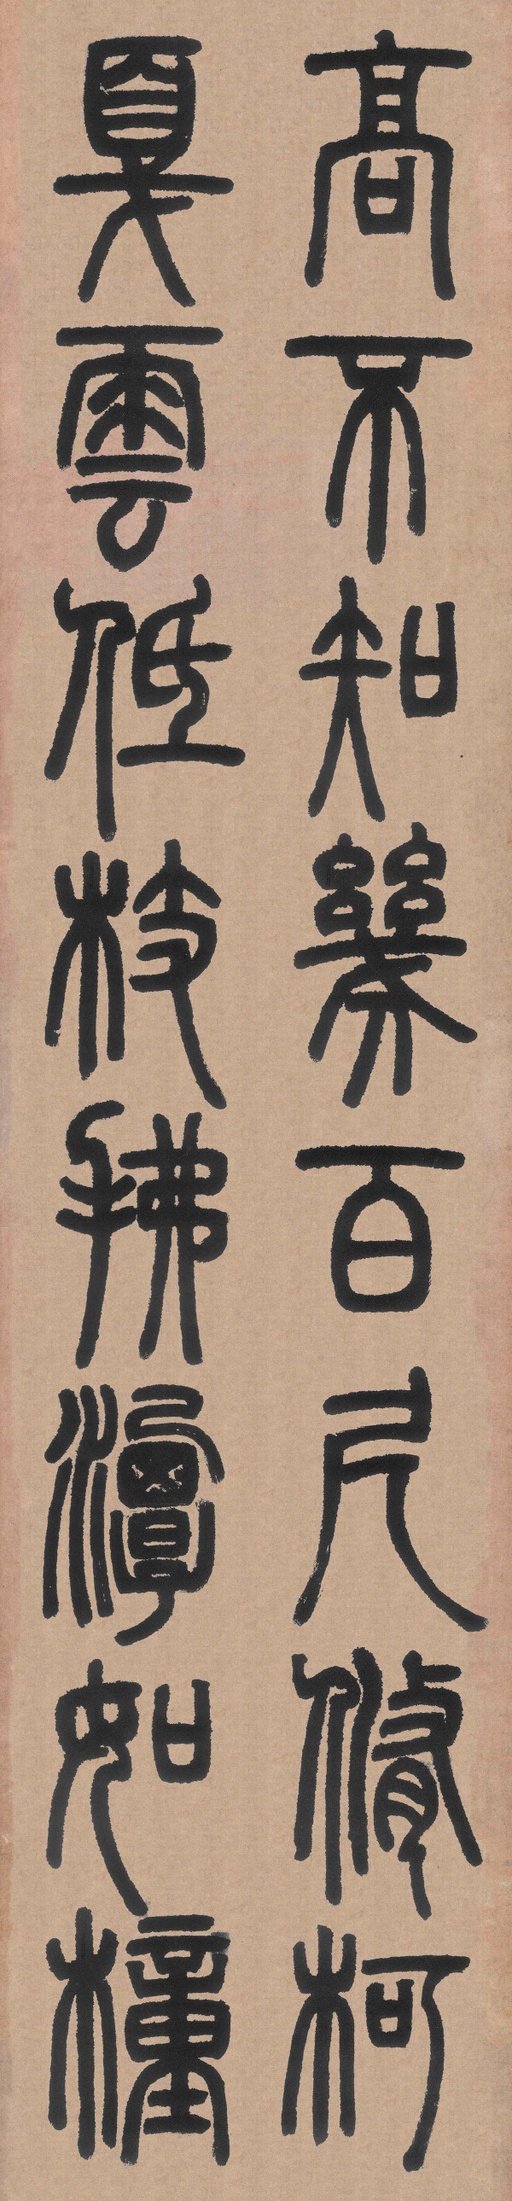 高不知幾百尺脩柯
戛雲低枝拂潭如橦